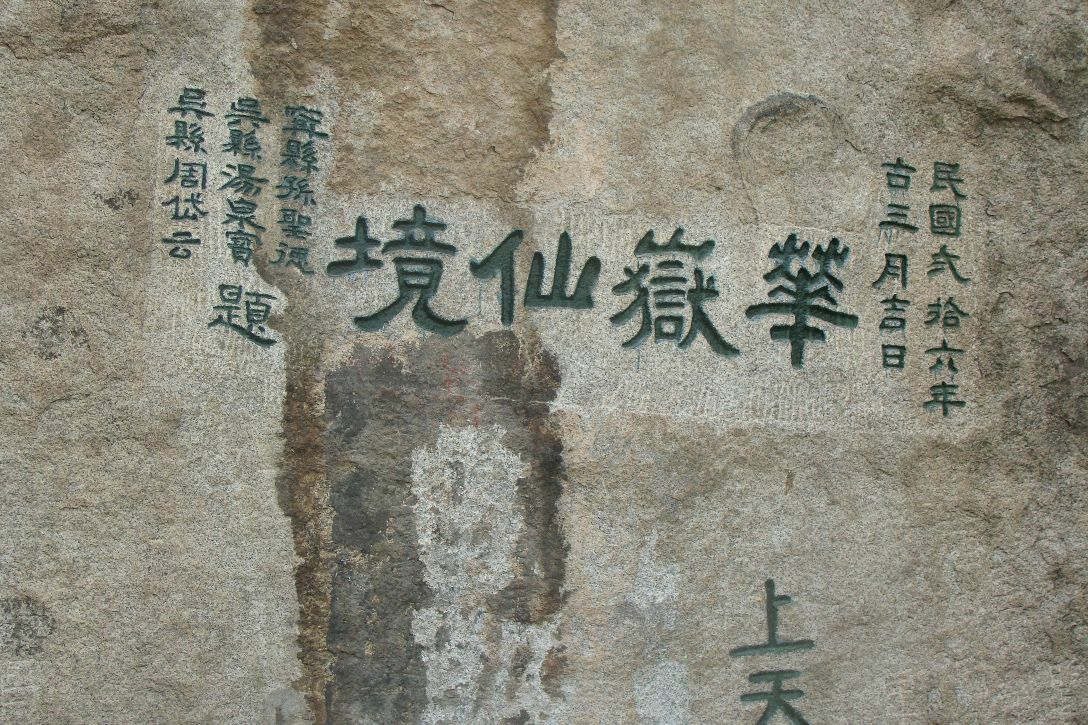 民國拾六年
古三月吉日
華嶽仙境
寧縣孫聖德
吳縣湯泉題
吳縣周岱云
上天